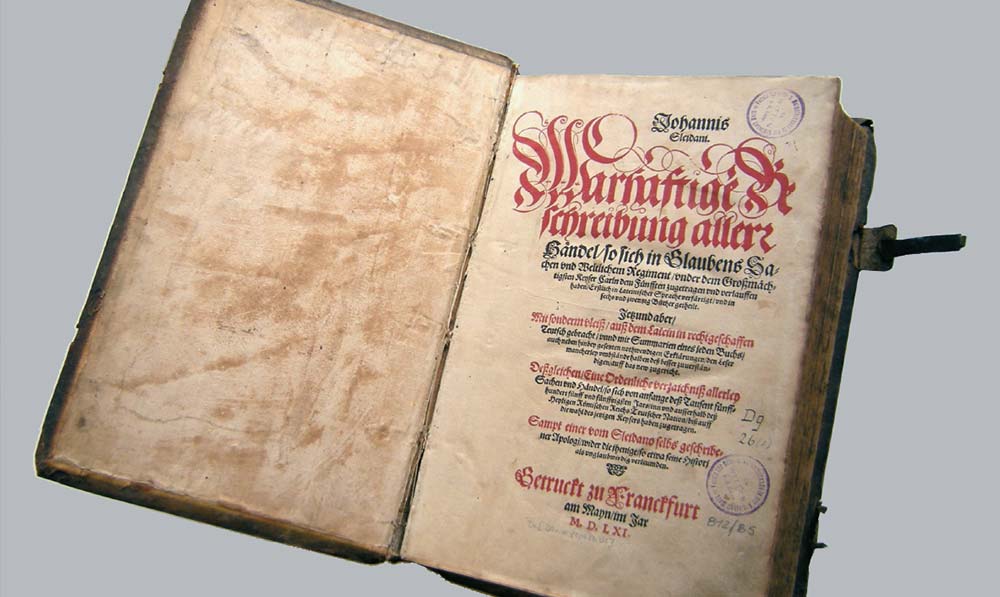 Johannis
Sleidani.
Warhafftige Be
schreibung aller
Händel / so sich in Glaubens Sa-
chen vnd Weltlichem Regiment / vnder dem Großmäch-
tigsten Keyser Carln dem Fünfften zugetragen vnd verlauffen
haben / Erstlich in Lateinischer Sprache verfärtigt / vnd in
sechs vnd zwentzig Bücher getheilt.
Jetzund aber /
Mit sonderm vleiß / auß dem Latein in rechtgeschaffen
Teutsch gebracht / vnnd mit Summarien eines jeden Buchs /
auch neben hinbey gesetzten nothwendigen Erklärungen / den Leser
mancherley vmbstände halben deß besser zu verstän-
digen / auff das new zugericht.
Deßgleichen / Eine Ordenliche verzaichniß allerley
Sachen vnd Händel / so sich von anfange deß Tausent fünff-
hundert fünff vnd fünfftzigsten Jars / inn vnd ausserhalb deß
Heyligen Römischen Reichs Teutscher Nation / biß auff
die wahl des jetzigen Keysers haben zugetragen.
Sampt einer vom Sleidano selbs geschribe-
ner Apologi / wider die jhenige / so etwa seine Histori
als vnglaubwirdig verleumden.
Getruckt zu Franckfurt
am Mayn / im Jar
M. D. LXI.
Dg
26(1)
B12/B5